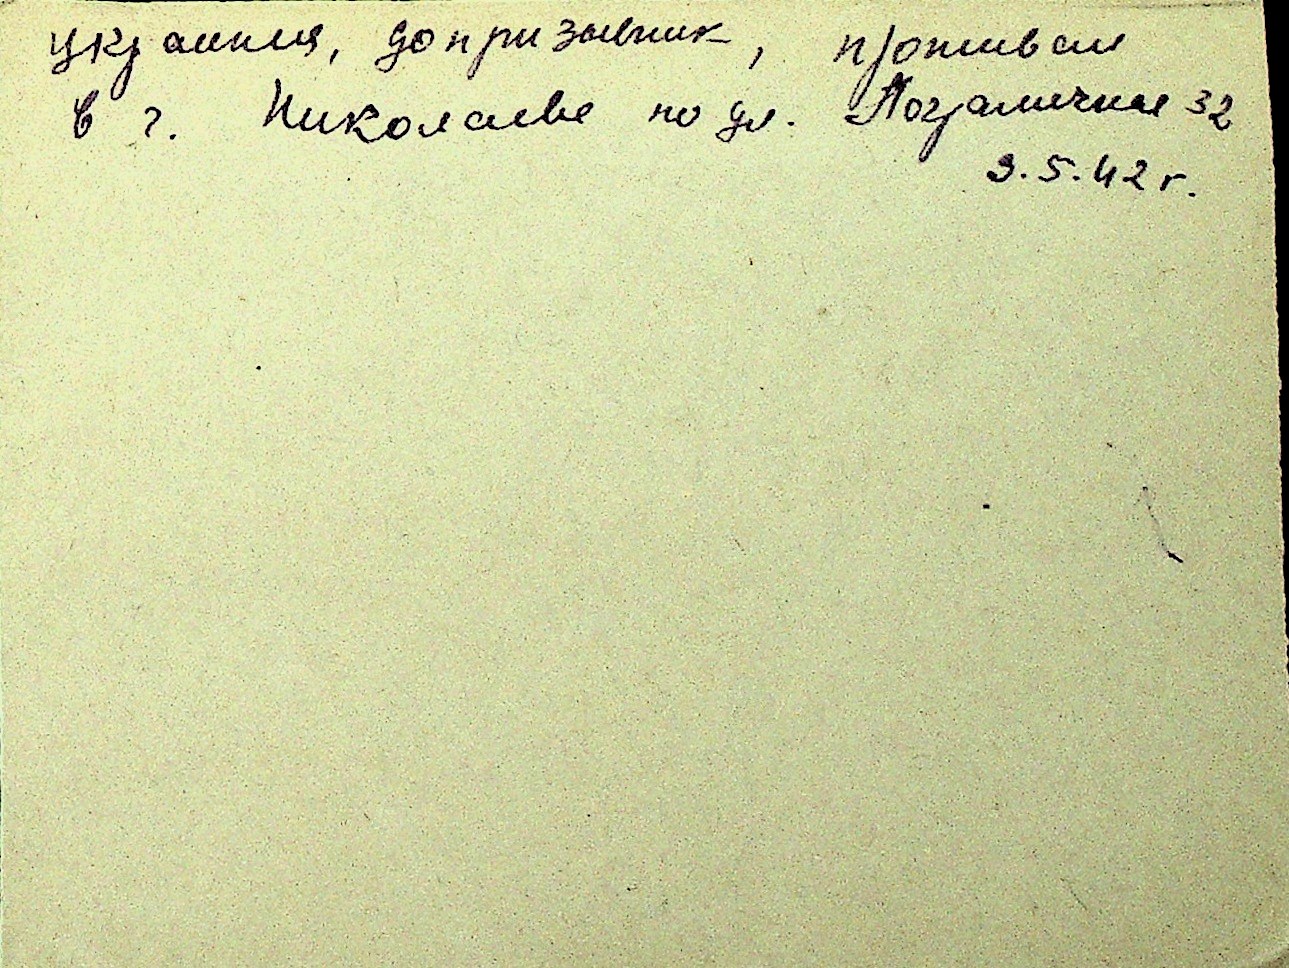 украинец, допризывник, проживал
в г. Николаеве по ул. Пограничная 32
9.5.42 г.